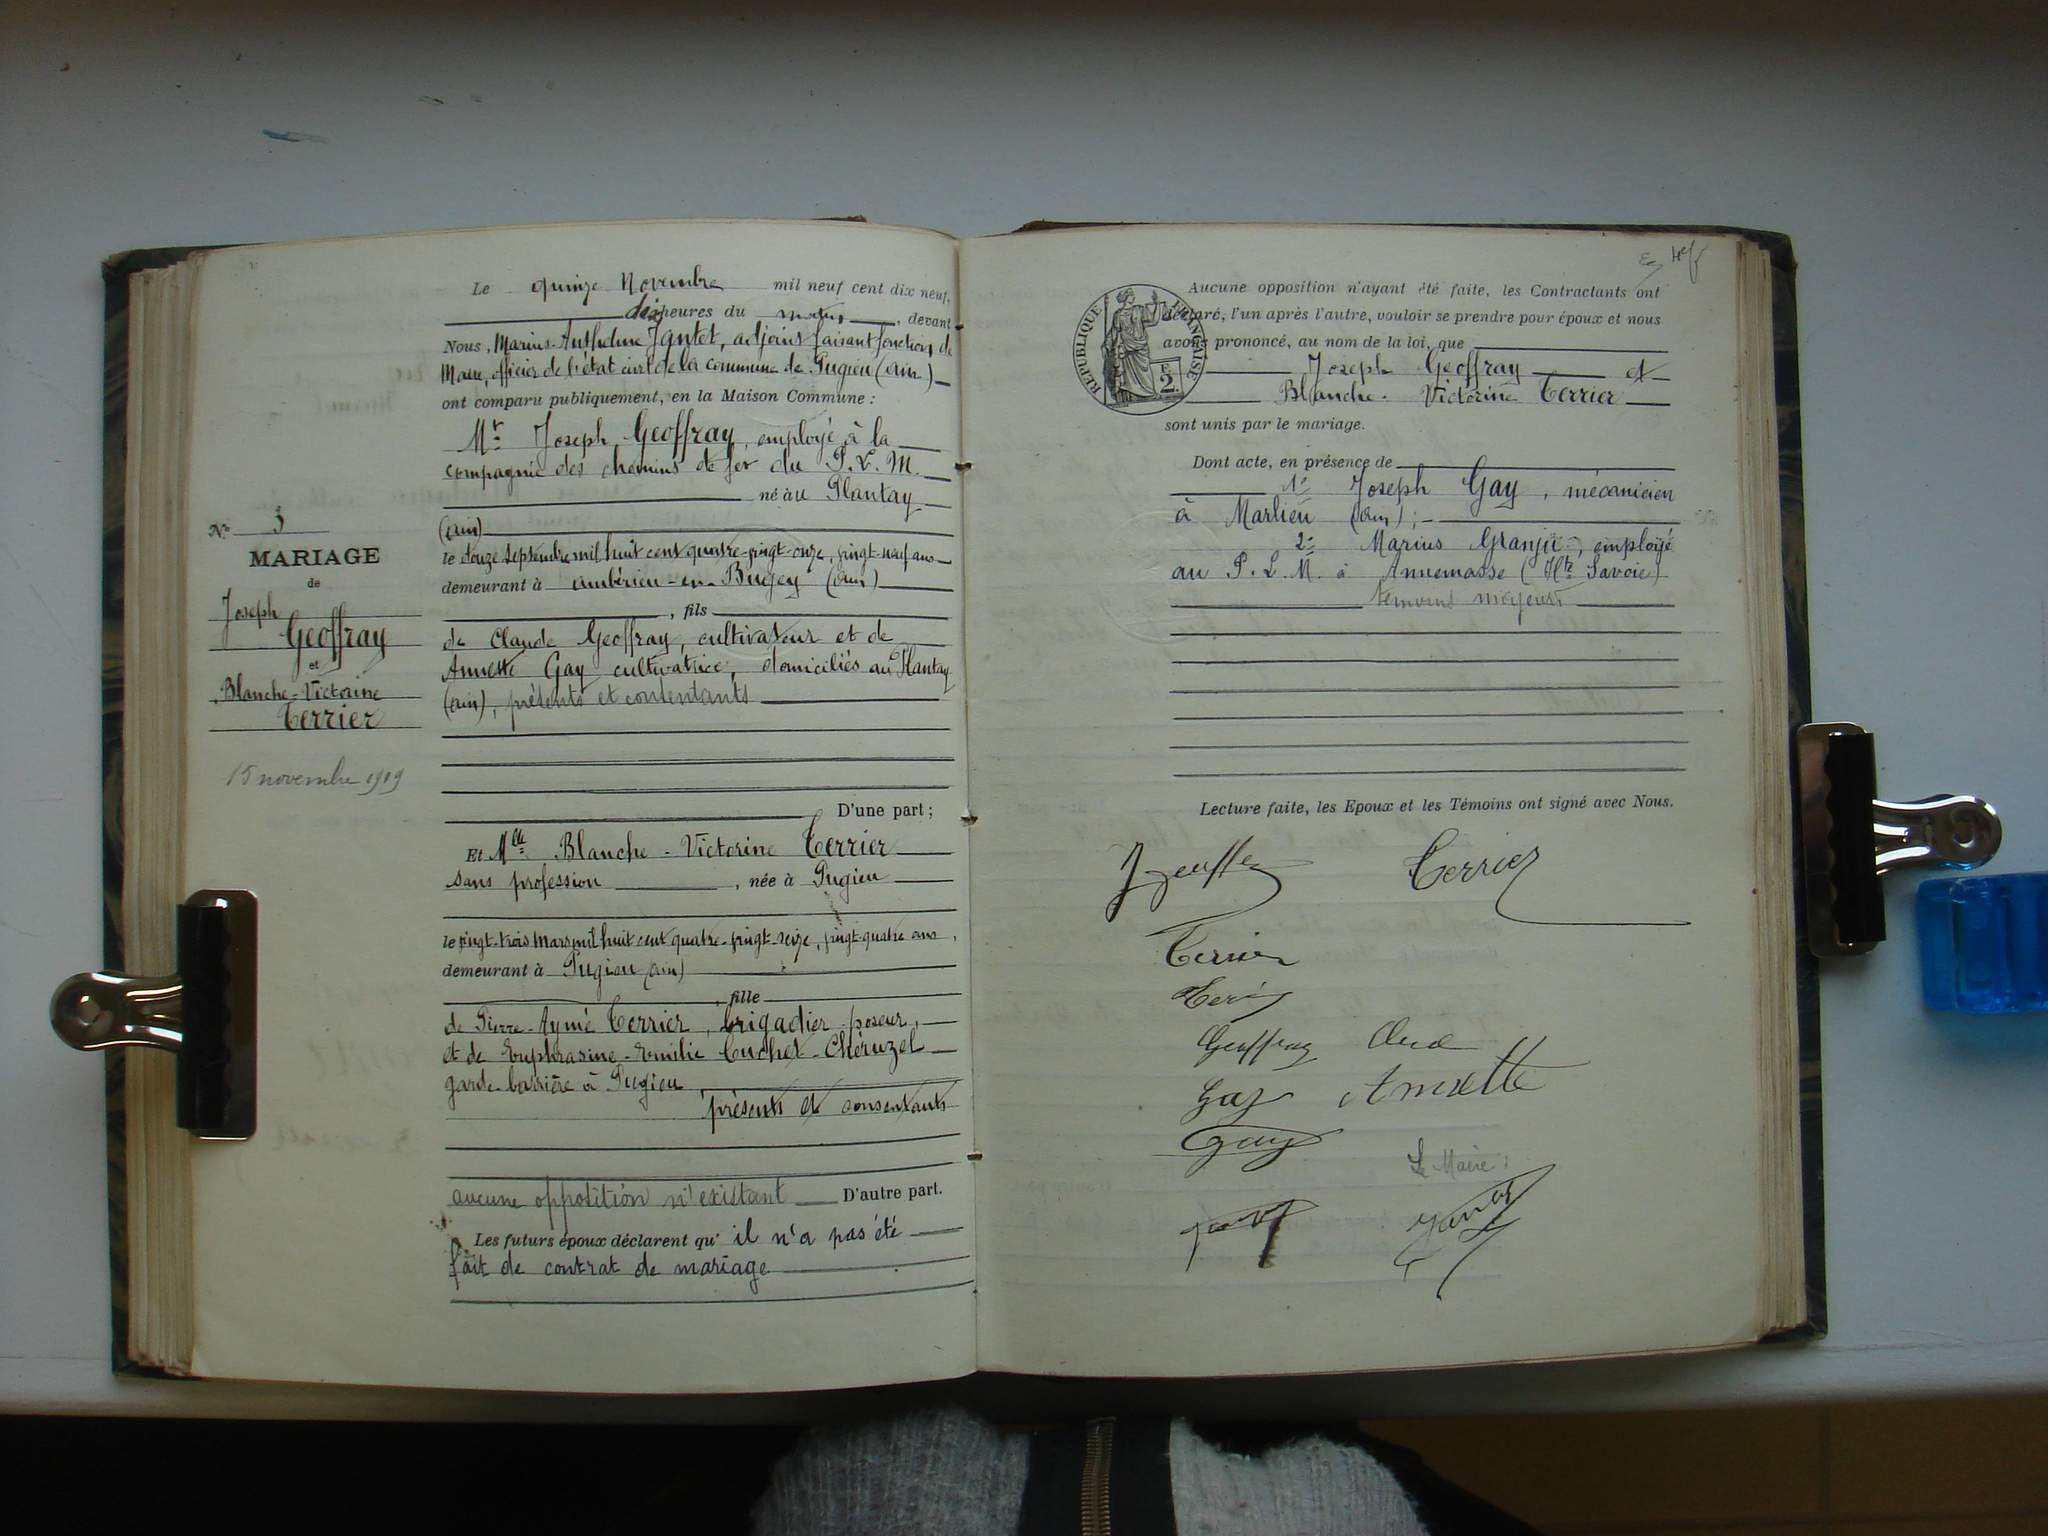 Le quinze Novembre mil neuf cent dix neuf,
dix heures du matin, devant
Nous, Marius-Anthelme Jantet, adjoint faisant fonction de
Maire, officier de l'état civil de la commune de Pugieu (Ain)
ont comparu publiquement, en la Maison Commune :
Mr Joseph Geoffray, employé à la
compagnie des chemins de fer du P. L. M.
né au Plantay
(Ain)
le douze septembre mil huit cent quatre-vingt-onze, vingt-neuf ans
demeurant à Ambérieu-en-Bugey (Ain)
, fils
de Claude Geoffray, cultivateur et de
Annette Gay cultivatrice, domiciliés au Plantay
(Ain), présents et contentants
D'une part ;
Et Mlle Blanche-Victorine Terrier
sans profession, née à Pugieu
le vingt-trois Mars mil huit cent quatre-vingt-seize, vingt-quatre ans,
demeurant à Pugieu (Ain)
, fille
de Pierre-Aymé Terrier, brigadier-poseur,
et de Euphrasine-Emilie Cuchet-Chéruzel
garde-barrière à Pugieu,
présents et consentants
aucune opposition n'existant D'autre part.
Les futurs époux déclarent qu'il n'a pas été
fait de contrat de mariage
No 3
MARIAGE
de
Joseph
Geoffray
et
Blanche-Victorine
Terrier
15 novembre 1919
REPUBLIQUE FRANÇAISE
F
2
Aucune opposition n'ayant été faite, les Contractants ont
déclaré, l'un après l'autre, vouloir se prendre pour époux et nous
avons prononcé, au nom de la loi, que
Joseph Geoffray et
Blanche-Victorine Terrier
sont unis par le mariage.
Dont acte, en présence de
1º Joseph Gay, mécanicien
à Marlieu (Ain) ;
2º Marius Granju, employé
au P. L. M. à Annemasse (Hte Savoie)
témoins majeurs
Lecture faite, les Epoux et les Témoins ont signé avec Nous.
Terrier
Terrier
Geoffray
Gay Annette
Gay
Le Maire :